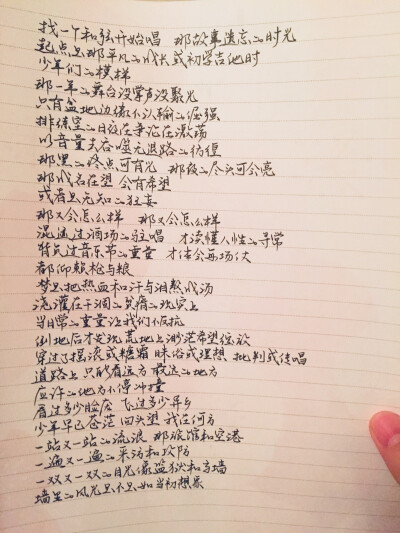 找一个和弦开始唱 那故事遗忘的时光
起点是那平凡的成长或初学吉他时
少年们的模样
那一年的舞台没掌声没聚光
只有盆地边缘不认输的倔强
排练室的日夜在争论在激荡
以音量去吞噬无退路的彷徨
那里的终点可有光 那后的尽头可会亮
那成名在望 会有希望
或者是无知的狂妄
那又会怎么样 那又会怎么样
混迹过酒场的驻唱 才读懂人性的寻常
背负过音乐节的重量 才体会每场仗
都仰赖枪与粮
梦是把热血和汗与泪熬成汤
浇灌在干涸的贫瘠的现实上
当日常的重量让我们不反抗
倒地后才发现荒地上渺茫希望绽放
穿过了摇滚或糖霜 昧俗或理想 批判或传唱
道路上 只盼着远方 最远的地方
应许的地方不停冲撞
看过多少脸庞 飞过多少异乡
少年早已苍茫 回头望 我在何方
一站又一站的流浪 那旅馆和空港
一遍又一遍的来访和攻防
一双又一双的目光像监狱和高墙
墙里的风光是不是如当初想象